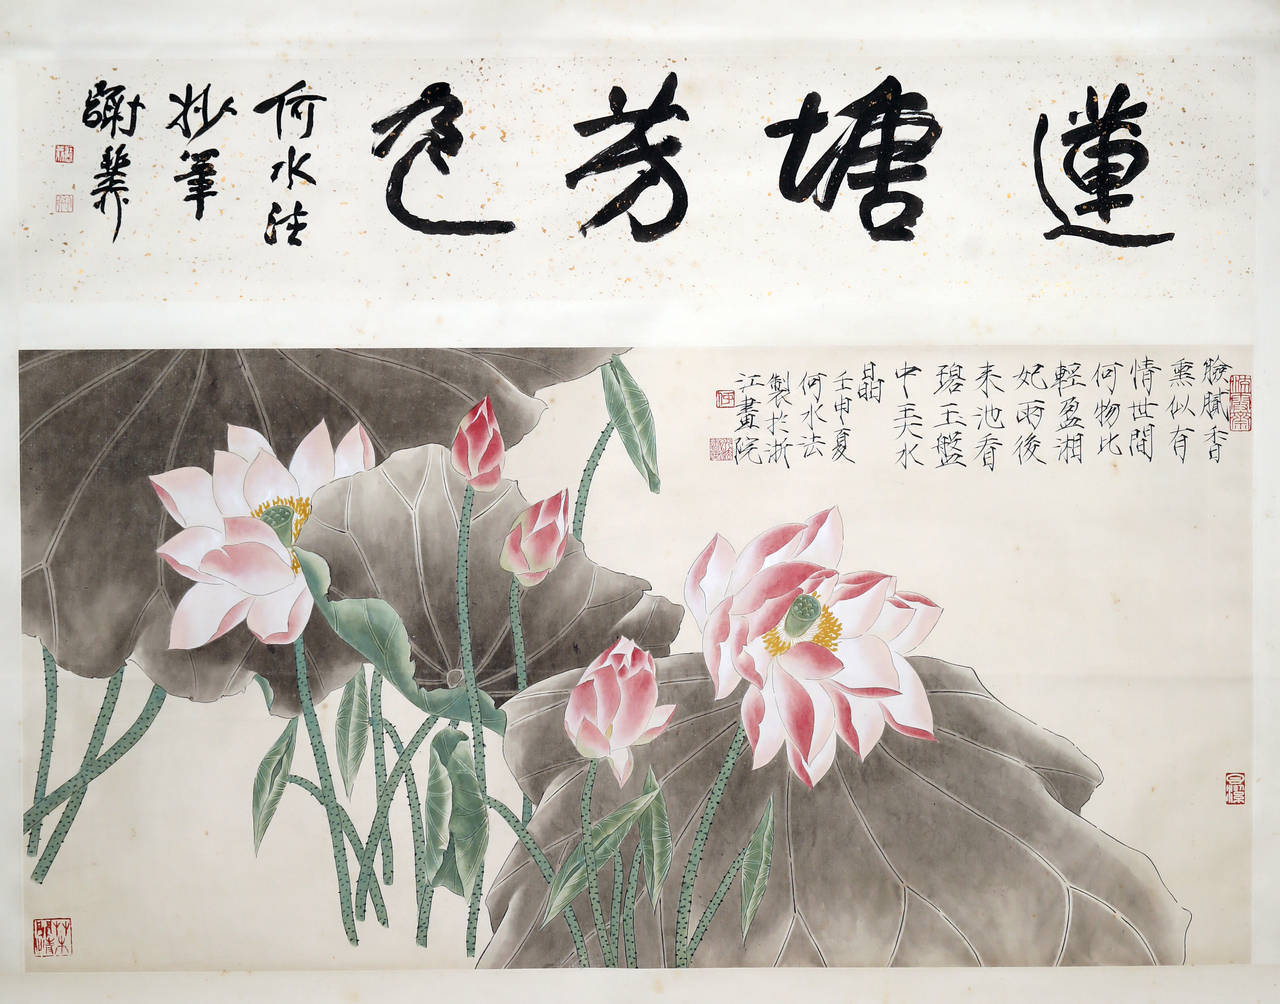 蓮塘芳色
何水法
妙筆
謝
臉膩香
熏似有
情世間
何物比
輕盈湘
妃雨後
来池看
碧玉盤
中弄水
晶
壬申夏
何水法
製於浙
江畫院